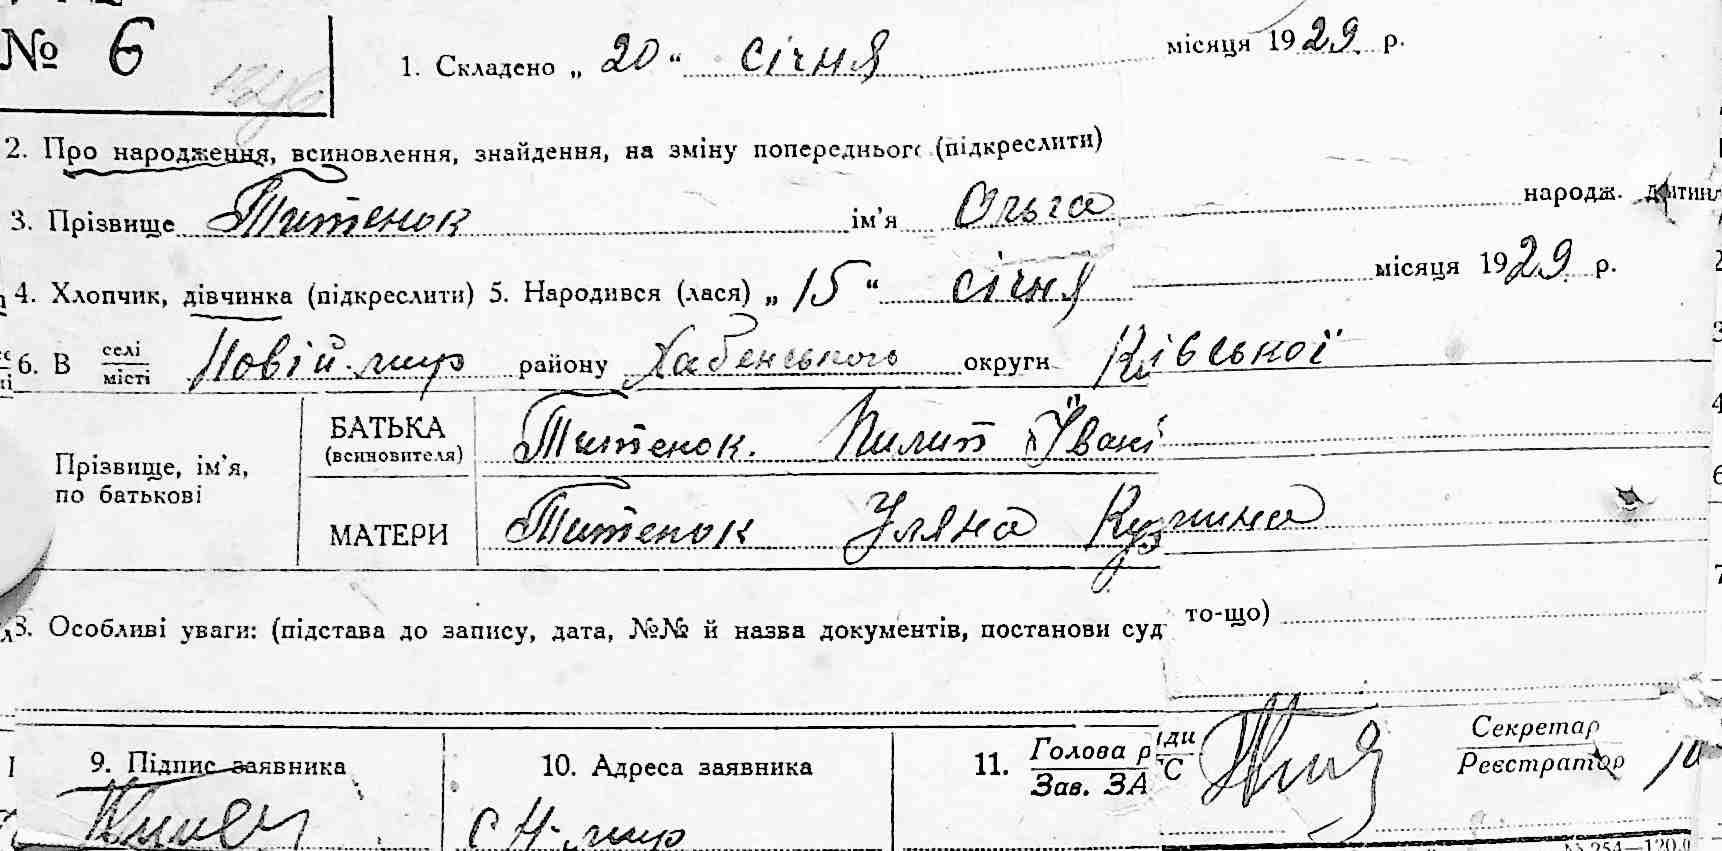 № 6
1. Складено „ 20 “ січня місяця 1929 р.
2. Про народження, всиновлення, знайдення, на зміну попереднього (підкреслити)
3. Прізвище Титенок ім’я Ольга народж. дитини
4. Хлопчик, дівчинка (підкреслити) 5. Народився (лася) „ 15 “ січня місяця 1929 р.
6. В селі місті Новій-мир району Хабенського округи Київської
Прізвище, ім’я, по батькові
БАТЬКА (всиновителя) Титенок. Пилип Івані
МАТЕРИ Титенок Уляна
8. Особливі уваги: (підстава до запису, дата, №№ й назва документів, постанови суд то-що)
9. Підпис заявника
10. Адреса заявника
11. Голова ради Зав. ЗАГС
Секретар Реєстратор
с Н-мир